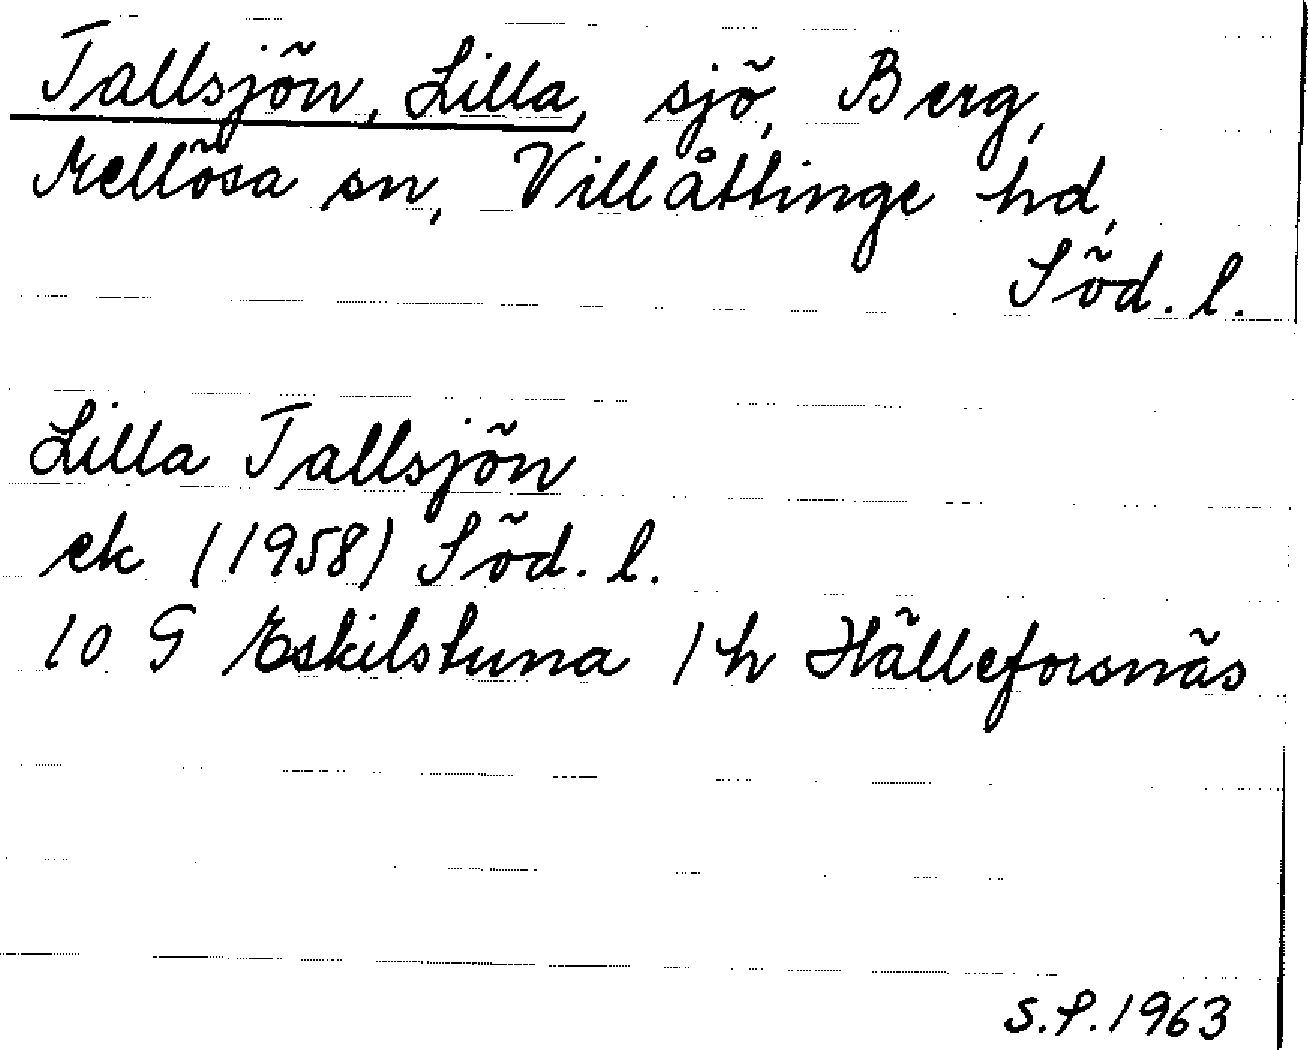 Tallsjön, Lilla, sjö, Berg,
Mellösa sn, Villåttinge hd,
Söd. l.
Lilla Tallsjön
ek (1958) Söd. l.
10 G Eskilstuna 1 h Hälleforsnäs
S.P. 1963